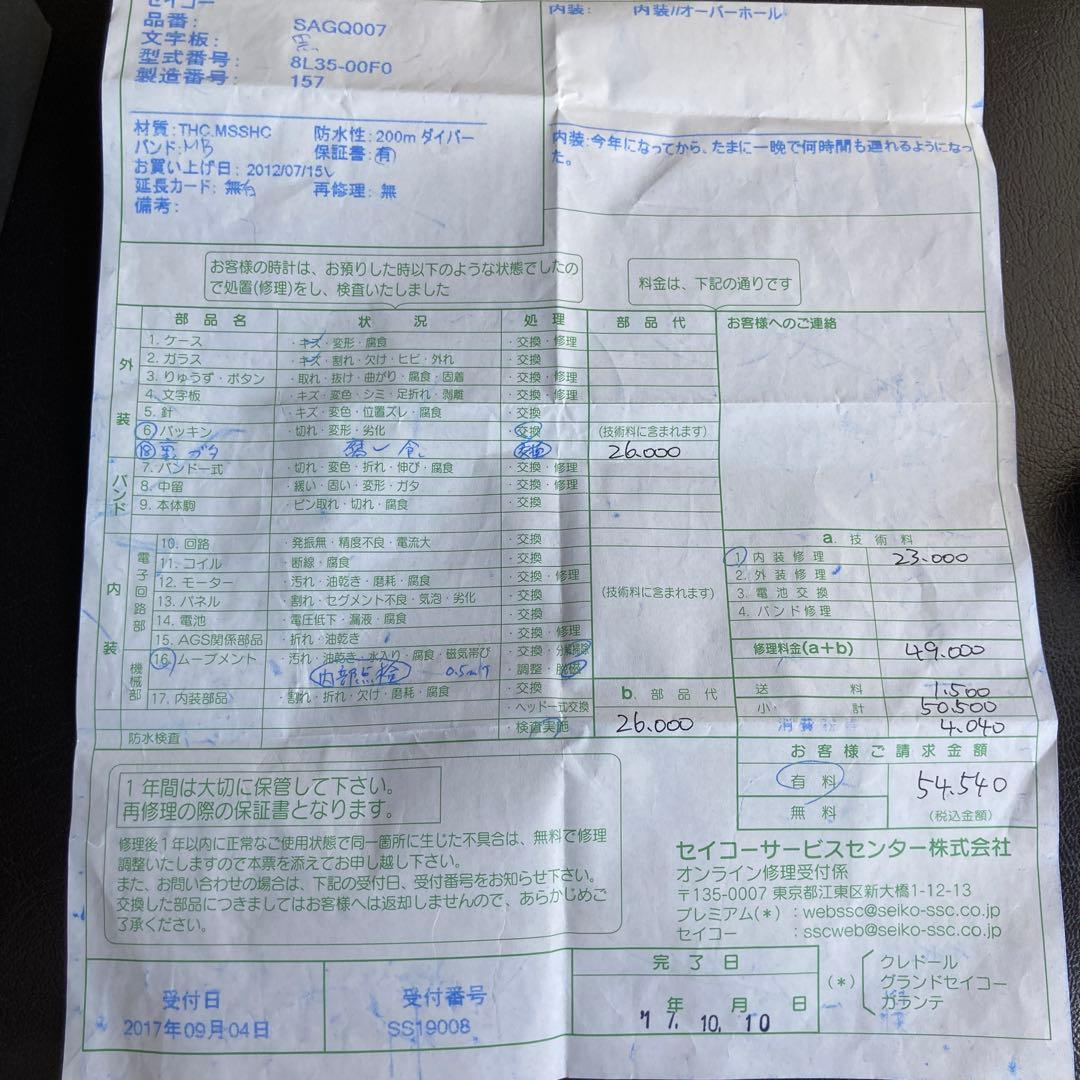 セイコー
品番: SAGQ007
文字板: 黒
型式番号: 8L35-00F0
製造番号: 157
内装: 内装//オーバーホール
材質:THC.MSSHC 防水性:200m ダイバー
バンド:MB 保証書:有
お買い上げ日:2012/07/15
延長カード: 無 再修理: 無
備考:
内装:今年になってから、たまに一晩で何時間も遅れるようになっ
た。
お客様の時計は、お預りした時以下のような状態でしたの
で処置(修理)をし、検査いたしました
料金は、下記の通りです
部品名 状況 処理 部品代 お客様へのご連絡
外装
1. ケース ・キズ・変形・腐食 ・交換・修理
2. ガラス ・キズ・割れ・欠け・ヒビ・外れ ・交換・修理
3. りゅうず・ボタン ・取れ・抜け・曲がり・腐食・固着 ・交換・修理
4. 文字板 ・キズ・変色・シミ・足折れ・剥離 ・交換・修理
5. 針 ・キズ・変色・位置ズレ・腐食 ・交換
6 パッキン ・切れ・変形・劣化 ・交換 (技術料に含まれます)
⑱ 裏ガタ 交換 26.000
バンド
7. バンド一式 ・切れ・変色・折れ・伸び・腐食 ・交換・修理
8. 中留 ・緩い・固い・変形・ガタ ・交換・修理
9. 本体駒 ・ピン取れ・切れ・腐食 ・交換
内装
電子回路部
10. 回路 ・発振無・精度不良・電流大 ・交換
11. コイル ・断線・腐食 ・交換
12. モーター ・汚れ・油乾き・磨耗・腐食 ・交換・修理
13. パネル ・割れ・セグメント不良・気泡・劣化 ・交換 (技術料に含まれます)
14. 電池 ・電圧低下・漏液・腐食 ・交換
15. AGS関係部品 ・折れ・油乾き ・交換・修理
機械部
16. ムーブメント ・汚れ・油乾き・水入り・腐食・磁気帯び ・交換・分解掃除
内部点検 0.5mm ・調整・脱磁
17. 内装部品 ・割れ・折れ・欠け・磨耗・腐食 ・交換
・ヘッド一式交換
防水検査 ・検査実施
b. 部品代
26.000
a. 技術料
1 内装修理 23.000
2. 外装修理
3. 電池交換
4. バンド修理
修理料金(a+b) 49.000
送料 1.500
小計 50.500
消費税等 4.040
お客様ご請求金額
有料 54.540
無料 (税込金額)
1年間は大切に保管して下さい。
再修理の際の保証書となります。
修理後1年以内に正常なご使用状態で同一箇所に生じた不具合は、無料で修理
調整いたしますので本票を添えてお申し越し下さい。
また、お問い合わせの場合は、下記の受付日、受付番号をお知らせ下さい。
交換した部品につきましてはお客様へは返却しませんので、あらかじめご
了承ください。
セイコーサービスセンター株式会社
オンライン修理受付係
〒135-0007 東京都江東区新大橋1-12-13
プレミアム(*) :webssc@seiko-ssc.co.jp
セイコー :sscweb@seiko-ssc.co.jp
受付日
2017年09月04日
受付番号
SS19008
完了日
年 月 日
'17. 10. 10
(*)
クレドール
グランドセイコー
ガランテ